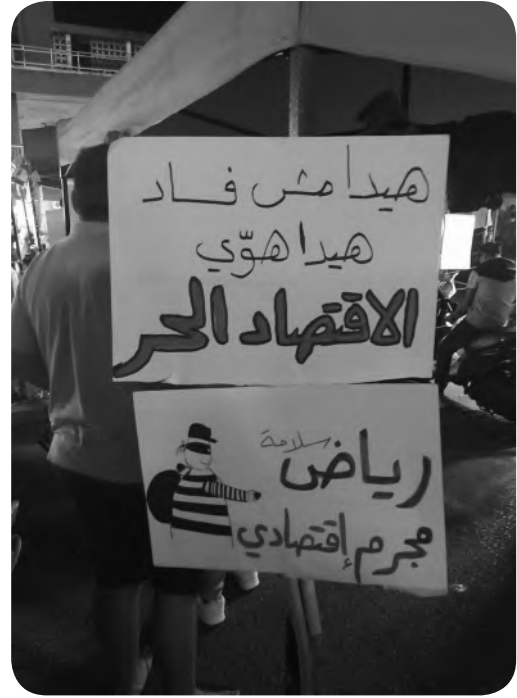 هيدا مش فساد
هيدا هوّي
الاقتصاد الحر
رياض سلامة
مجرم إقتصادي